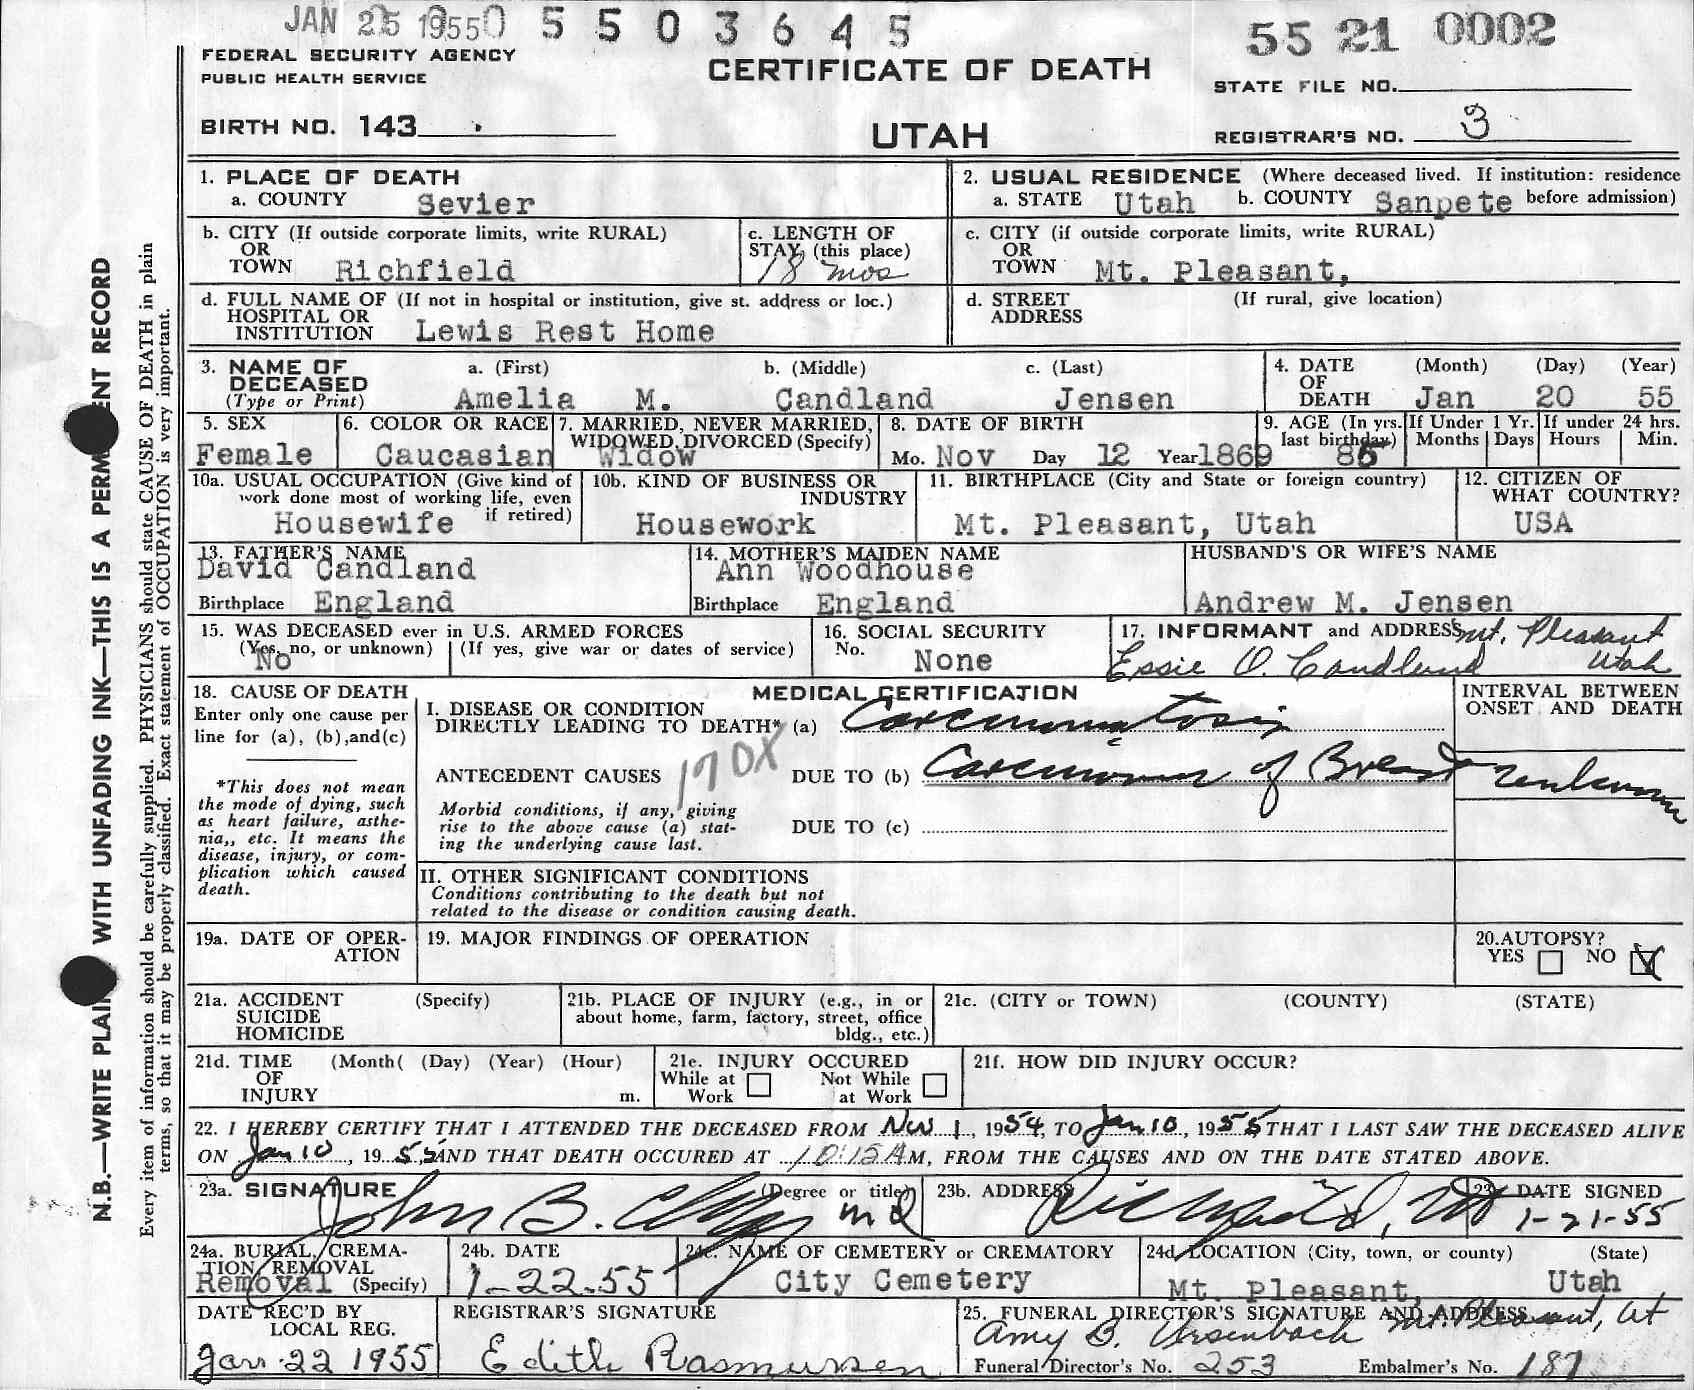 JAN 25 1955 0 5 5 0 3 6 4 5
55 21 0002
FEDERAL SECURITY AGENCY
PUBLIC HEALTH SERVICE
CERTIFICATE OF DEATH
STATE FILE NO.
BIRTH NO. 143
UTAH
REGISTRAR'S NO. 3
N.B.—WRITE PLAIN WITH UNFADING INK—THIS IS A PERM ENT RECORD
Every item of information should be carefully supplied. PHYSICIANS should state CAUSE OF DEATH in plain
terms, so that it may be properly classified. Exact statement of OCCUPATION is very important.
1. PLACE OF DEATH
a. COUNTY Sevier
2. USUAL RESIDENCE (Where deceased lived. If institution: residence
a. STATE Utah b. COUNTY Sanpete before admission)
b. CITY (If outside corporate limits, write RURAL)
OR
TOWN Richfield
c. LENGTH OF
STAY (this place)
18 mos
c. CITY (if outside corporate limits, write RURAL)
OR
TOWN Mt. Pleasant,
d. FULL NAME OF (If not in hospital or institution, give st. address or loc.)
HOSPITAL OR
INSTITUTION Lewis Rest Home
d. STREET (If rural, give location)
ADDRESS
3. NAME OF a. (First) b. (Middle) c. (Last)
DECEASED
(Type or Print) Amelia M. Candland Jensen
4. DATE (Month) (Day) (Year)
OF
DEATH Jan 20 55
5. SEX
Female
6. COLOR OR RACE
Caucasian
7. MARRIED, NEVER MARRIED,
WIDOWED, DIVORCED (Specify)
Widow
8. DATE OF BIRTH
Mo. Nov Day 12 Year 1869
9. AGE (In yrs.
last birthday)
85
If Under 1 Yr.
Months Days
If under 24 hrs.
Hours Min.
10a. USUAL OCCUPATION (Give kind of
work done most of working life, even
if retired)
Housewife
10b. KIND OF BUSINESS OR
INDUSTRY
Housework
11. BIRTHPLACE (City and State or foreign country)
Mt. Pleasant, Utah
12. CITIZEN OF
WHAT COUNTRY?
USA
13. FATHER'S NAME
David Candland
Birthplace England
14. MOTHER'S MAIDEN NAME
Ann Woodhouse
Birthplace England
HUSBAND'S OR WIFE'S NAME
Andrew M. Jensen
15. WAS DECEASED ever in U.S. ARMED FORCES
(Yes, no, or unknown) (If yes, give war or dates of service)
No
16. SOCIAL SECURITY
No.
None
17. INFORMANT and ADDRESS Mt. Pleasant
Essie O. Candland Utah
18. CAUSE OF DEATH
Enter only one cause per
line for (a), (b),and(c)
*This does not mean
the mode of dying, such
as heart failure, asthe-
nia,, etc. It means the
disease, injury, or com-
plication which caused
death.
MEDICAL CERTIFICATION
I. DISEASE OR CONDITION
DIRECTLY LEADING TO DEATH* (a) Carcinomatosis
ANTECEDENT CAUSES 170X DUE TO (b) Carcinoma of Breast
Morbid conditions, if any, giving
rise to the above cause (a) stat-
ing the underlying cause last.
DUE TO (c)
INTERVAL BETWEEN
ONSET AND DEATH
unknown
II. OTHER SIGNIFICANT CONDITIONS
Conditions contributing to the death but not
related to the disease or condition causing death.
19a. DATE OF OPER-
ATION
19. MAJOR FINDINGS OF OPERATION
20.AUTOPSY?
YES NO
21a. ACCIDENT (Specify)
SUICIDE
HOMICIDE
21b. PLACE OF INJURY (e.g., in or
about home, farm, factory, street, office
bldg., etc.)
21c. (CITY or TOWN) (COUNTY) (STATE)
21d. TIME (Month( (Day) (Year) (Hour)
OF
INJURY m.
21e. INJURY OCCURED
While at Not While
Work at Work
21f. HOW DID INJURY OCCUR?
22. I HEREBY CERTIFY THAT I ATTENDED THE DECEASED FROM Nov 1, 1954, TO Jan 10, 1955, THAT I LAST SAW THE DECEASED ALIVE
ON Jan 10, 1955 AND THAT DEATH OCCURED AT 10:15 A M, FROM THE CAUSES AND ON THE DATE STATED ABOVE.
23a. SIGNATURE (Degree or title)
John B. MD
23b. ADDRESS
Richfield, Ut
DATE SIGNED
1-21-55
24a. BURIAL, CREMA-
TION, REMOVAL
Removal (Specify)
24b. DATE
1-22-55
24c. NAME OF CEMETERY or CREMATORY
City Cemetery
24d. LOCATION (City, town, or county) (State)
Mt. Pleasant, Utah
DATE REC'D BY
LOCAL REG.
Jan 22 1955
REGISTRAR'S SIGNATURE
Edith Rasmussen
25. FUNERAL DIRECTOR'S SIGNATURE AND ADDRESS
Amy B. Ursenbach Mt. Pleasant, Ut
Funeral Director's No. 253 Embalmer's No. 187